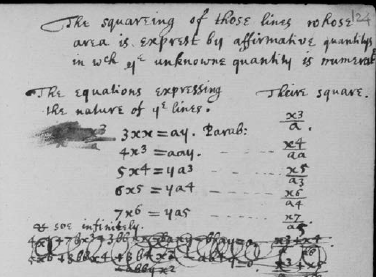 124
The squareing of those lines whose
area is exprest by affirmative quantitys
in wch ye unknowne quantity is numerat
The equations expressing Theire square.
the nature of ye lines.
3xx = ay. Parab: x3/a.
4x3 = aay. x4/aa
5x4 = ya3 x5/a3
6x5 = ya4 x6/a4
7x6 = ya5 x7/a5.
& soe infinitely.